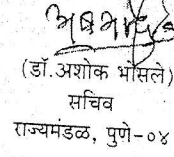 (डॉ.अशोक भोसले)
सचिव
राज्यमंडळ, पुणे-०४